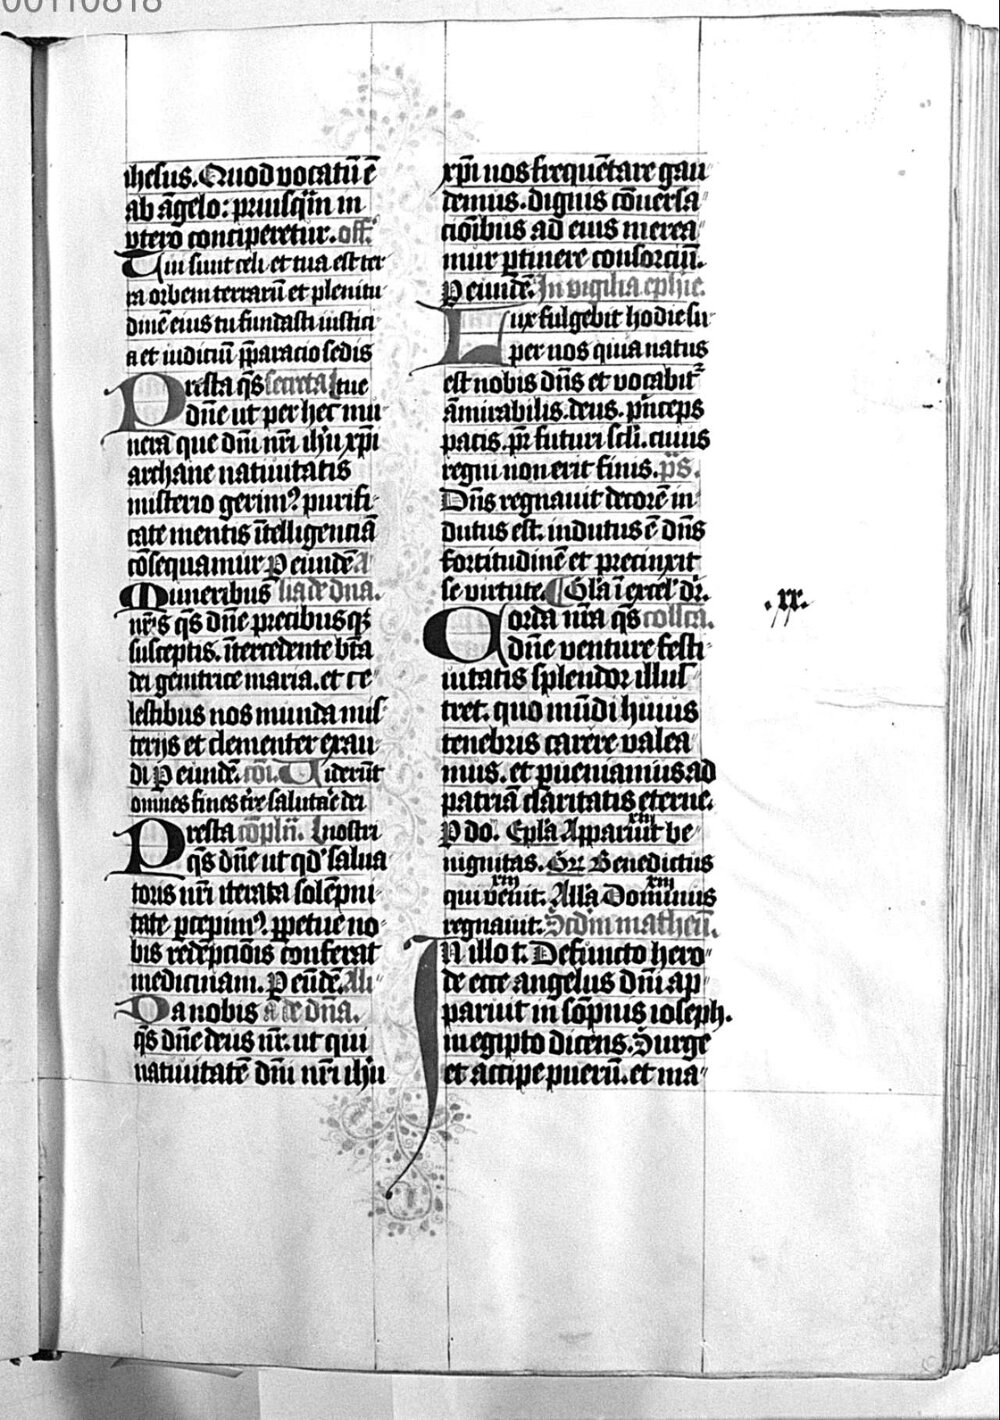 00110818
ihesus. Quod vocatū ē
ab āgelo: priusq̄in in
vtero conciperetur. off.
Tui sunt celi et tua est ter
ra orbem terrarū et plenitu
dinē eius tu fundasti iustici
a et iudiciū p̄paracio sedis
Presta q̄s secreta tue
dn̄e ut per hec mu
nera que dn̄i nr̄i ih'u xp̄i
archane natiuitatis
misterio gerim? purifi
cate mentis ītelligenciā
cōsequamur P eundē A
Muneribus lia de dna.
nr̄is q̄s dn̄e precibusq;
susceptis. ītercedente bt̄a
dei genitrice maria. et ce
lestibus nos munda mis
terijs et clementer exau
di P eundē. cōi. Uiderūt
omnes fines tr̄e salutar̄e dei
Presta cōpln̄. nostri
q̄s dn̄e ut qd' salua
toris nr̄i iterata solēpni
tate p̄cepim? ppetue no
bis redēpciōis conferat
medicinam. P eūdē. Ali
Da nobis a de dn̄a.
q̄s dn̄e deus nr̄. ut qui
natiuitatē dn̄i nr̄i ih'u
xp̄i nos frequētare gau
demus. dignis cōuersa
ciōibus ad eius merea
mur ptinere consorciū.
P eundē. In vigilia ephie.
Lux fulgebit hodie su
per nos quia natus
est nobis dn̄s et vocabit̄
āmirabilis. deus. p̄nceps
pacis. pr̄ futuri sc̄li. cuius
regni non erit finis. p̄s.
Dn̄s regnauit decorē in
dutus est. indutus ē dn̄s
fortitudinē et precinxit
se virtute. Gl̄a ī excel' dr̄.
Corda nr̄a q̄s collca.
dn̄e venture festi
uitatis splendor illus
tret. quo mūdi huius
tenebris carere valea
mus. et pueniamus ad
patriā claritatis eterne.
xiii
P do. Epl̄a Apparuit be
nignitas. Gr̄ Benedictus
xiii xiii
qui venit. All̄a Dominus
regnauit. Scdm matheū.
.xx.
IN illo t. Defuncto hero
de ecce angelus dn̄i ap
paruit in sōpnis ioseph.
in egipto dicens. Surge
et accipe puerū. et ma